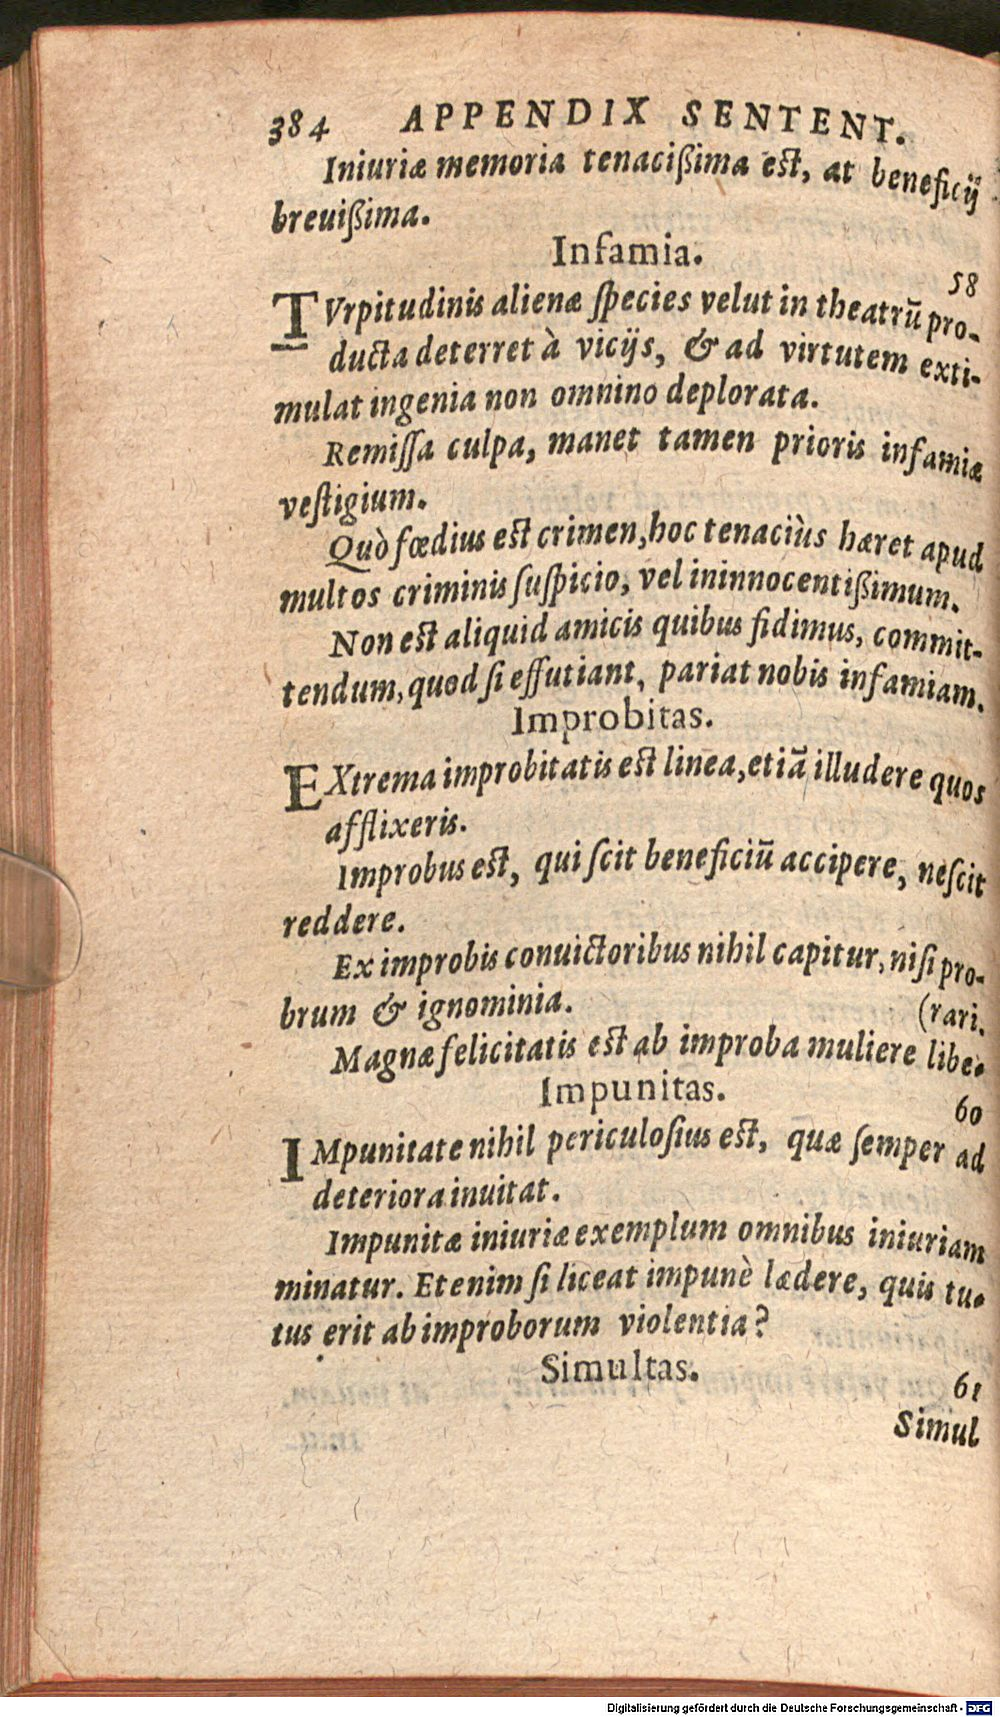 384 APPENDIX SENTENT.
Iniuriæ memoria tenacißima est, at beneficij
breuißima.
Infamia.
58
TVrpitudinis alienæ ſpecies velut in theatrũ pro-
ducta deterret à vicijs, & ad virtutem exti-
mulat ingenia non omnino deplorata.
Remiſſa culpa, manet tamen prioris infamiæ
veſtigium.
Quò fœdius est crimen, hoc tenaciùs hæret apud
multos criminis ſuſpicio, vel in innocentißimum.
Non est aliquid amicis quibus fidimus, commit-
tendum, quod ſi effutiant, pariat nobis infamiam.
Improbitas.
EXtrema improbitatis est linea, etiã illudere quos
afflixeris.
Improbus est, qui ſcit beneficiũ accipere, neſcit
reddere.
Ex improbis conuictoribus nihil capitur, niſi pro-
brum & ignominia.
(rari.
Magnæ felicitatis est ab improba muliere libe-
Impunitas.
60
IMpunitate nihil periculoſius est, quæ ſemper ad
deteriora inuitat.
Impunitæ iniuriæ exemplum omnibus iniuriam
minatur. Etenim ſi liceat impunè lædere, quis tu-
tus erit ab improborum violentia?
Simultas.
61
Simul
Digitalisierung gefördert durch die Deutsche Forschungsgemeinschaft - DFG